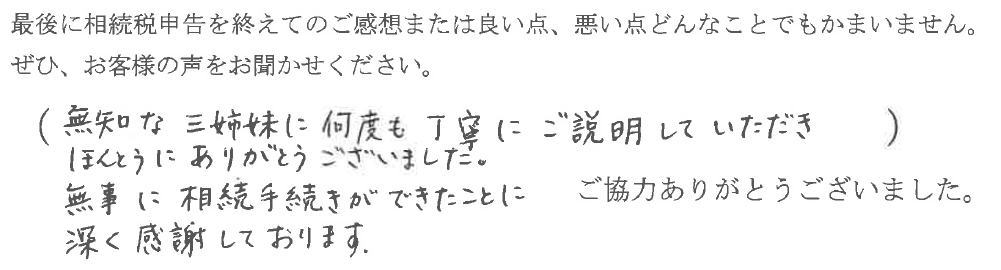 最後に相続税申告を終えてのご感想または良い点、悪い点どんなことでもかまいません。
ぜひ、お客様の声をお聞かせください。
(無知な三姉妹に何度も丁寧にご説明していただき)
ほんとうにありがとうございました。
無事に相続手続きができたことに
深く感謝しております。
ご協力ありがとうございました。